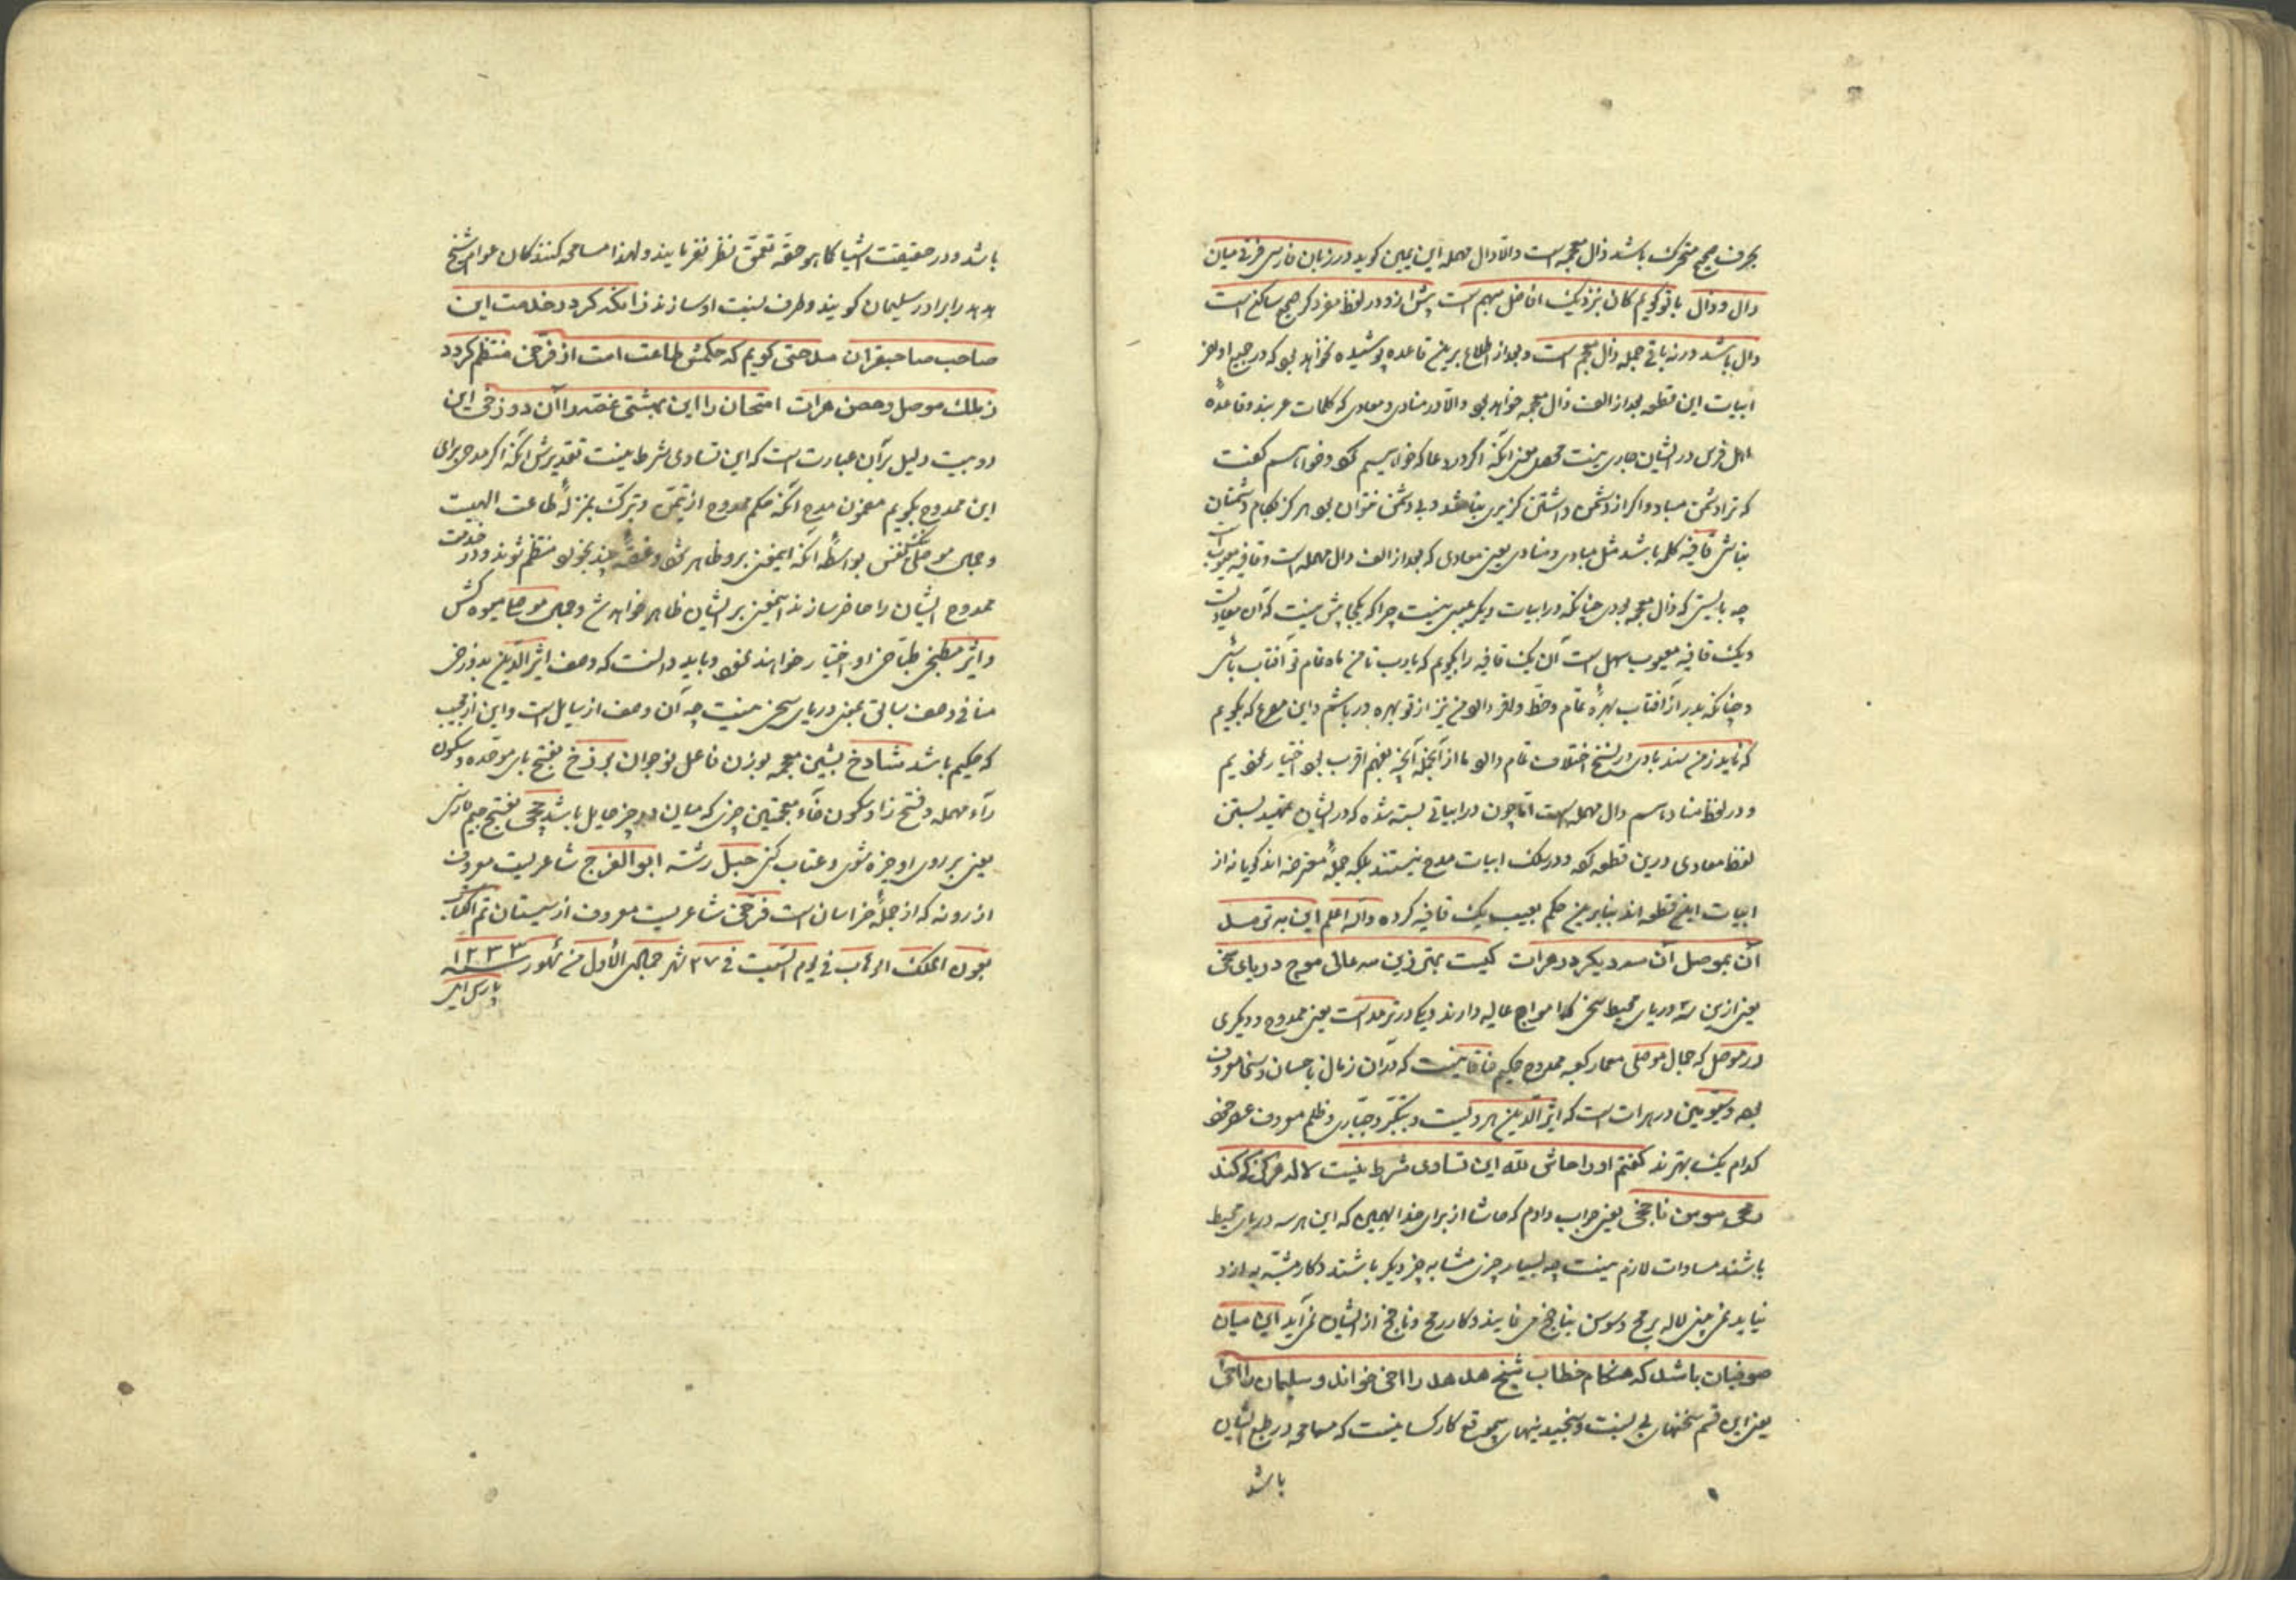 بحرف صحیح متحرک باشد ذال معجمه است والا دال مهمله ابن یمین کوید در زبان فارسی فرق میان
دال و ذال با تو کویم کان نزدیک افاضل مبهم است پیش ازو در لفظ مفرد کر صحیح ساکن است
دال باشد ورنه باقی جمله ذال معجم است و بعد از اطلاع برین قاعده پوشیده نخواهد بود که در جمیع اواخر
ابیات این قطعه بعد از الف ذال معجمه خواهد بود والا در منادی و معادی که کلمات عربیند و قاعدهٔ
اهل فرس در ایشان جاری نیست محصل معنی آنکه اگر در دعا که خواسیم کرد و خواسم کفت
که ترا دشمن مباد و اکر از دشمن داشتن کزیری نباشد و بی دشمن نتوان بود هرکز بکام دشمنان
بناش قافیه کله باشد مثل مبادی و منادی یعنی معادی که بعد از الف دال مهمله است و قافیه معیوب است
چه بایستی که ذال معجمه بودی چنانکه در ابیات دیکر عیبی نیست چرا که یکجا بیش نیست که آن معادیست
و یک قافیه معیوب سهل است آن یک قافیه را بکویم که یارب تا من ماه تمام تو آفتاب باشی
و چنانکه بدر از آفتاب بهرهٔ تمام و حظ وافر دارد من نیز از تو بهره ور باشم و این مصرع که بکویم
که ناید زمن سند بادی از نسخ اختلاف تمام دارد ما از آنجمله آنچه بفهم اقرب بود اختیار نمودیم
و در لفظ مناد باسم دال مهمله است اما چون در ابیاتی بسته شده که در ایشان تمهید بستن
لفظ معادی درین قطعه کرد و در سلک ابیات مدح نیستند بلکه جملهٔ معترضه اند کویا نه از
ابیات این قطعه اند بنابرین حکم بعیب یک قافیه کرده والله اعلم این به ترمد
آن بموصل آن سه دیکر در هرات کیست بهتر زین سه عالی موج دریای سخن
یعنی ازین سه دریای محیط سخن که امواج عالیه دارند یکی در ترمد است یعنی ممدوح و دیکری
در موصل که جمال موصلی معمار کعبه ممدوح حکیم خاقانیست که در آن زمان باحسان و سخا معروف
بود و سیومین در هرات است که اثیر الدین هرویست و بتکبر و جباری و ظلم معروف
کدام یک بهترند کفتم او را حاش لله این تساوی شرط نیست لاله هرکز کی کند
رمحی سوسن ناجخی یعنی جواب دادم که حاشا از برای خدا همین که این هر سه دریای محیط
باشند مساوات لازم نیست چه بسیار چیزی مشابه چیز دیکر باشند و کار مشبه به ازو
نیاید نمی بینی لاله برمح و سوسن بناجخ می نمایند و کار رمح و ناجخ از ایشان نمی آید این میان
صوفیان باشد که هنکام خطاب شیخ هدهد را اخی خواند و سلیمان را اخی
یعنی این قسم سخنهای بی نسبت و سنجیدنیهای بیموقع کار کسانیست که مسامحه در طبع ایشان
باشد
باشد و در حقیقت اشیا کما هو حقه تعمق نظر نفرمایند و لهذا مسامحه کنند کان عوام شیخ
هدهد را برادر سلیمان کویند و طرف نسبت او سازند زانکه کر در خدمت این
صاحب صاحبقران مدحتی کویم که حکمش طاعت است از فرخی منتظم کردد
زملک موصل و حصن هرات امتحان را این بهشتی عنصر و آن دوزخی این
دو بیت دلیل بر آن عبارت است که این تساوی شرط نیست تقدیرش آنکه اکر مدحی برای
این ممدوح بکویم مضمون مدح آنکه حکم ممدوح از تیمن و تبرک بمنزلهٔ طاعت الهیست
و جمال موصلی بواسطهٔ آنکه ایمعنی برو ظاهر شود و غصهٔ چند بخورد منتظم شوند و در خدمت
ممدوح ایشان را حاضر سازند ایمعنی بر ایشان ظاهر خواهد شد و جمال موصلی میوه کش
و اثیر مطبخی طباخی او اختیار خواهند نمود و باید دانست که وصف اثیر الدین بدوزخی
منافی وصف سابق یعنی دریای سخن نیست چه آن وصف از سایل است و این از مجیب
که حکیم باشد شادخ بشین معجمه بوزن فاعل نوجوان برزخ بفتح بای موحده و سکون
راء مهمله و فتح زا و سکون خاء معجمتین چیزی که میان دو چیز حایل باشد چخی بفتح جیم فارسی
یعنی بر روی او چیره شوی و عتاب کنی حبل رشته ابو الفرج شاعریست معروف
از رونه که از جملهٔ خراسان است فرخی شاعریست معروف از سیستان تم الکتاب
بعون الملک الوهاب فی یوم السبت فی ۲۷ شهر جمادی الاول من شهور سنه ۱۲۳۳